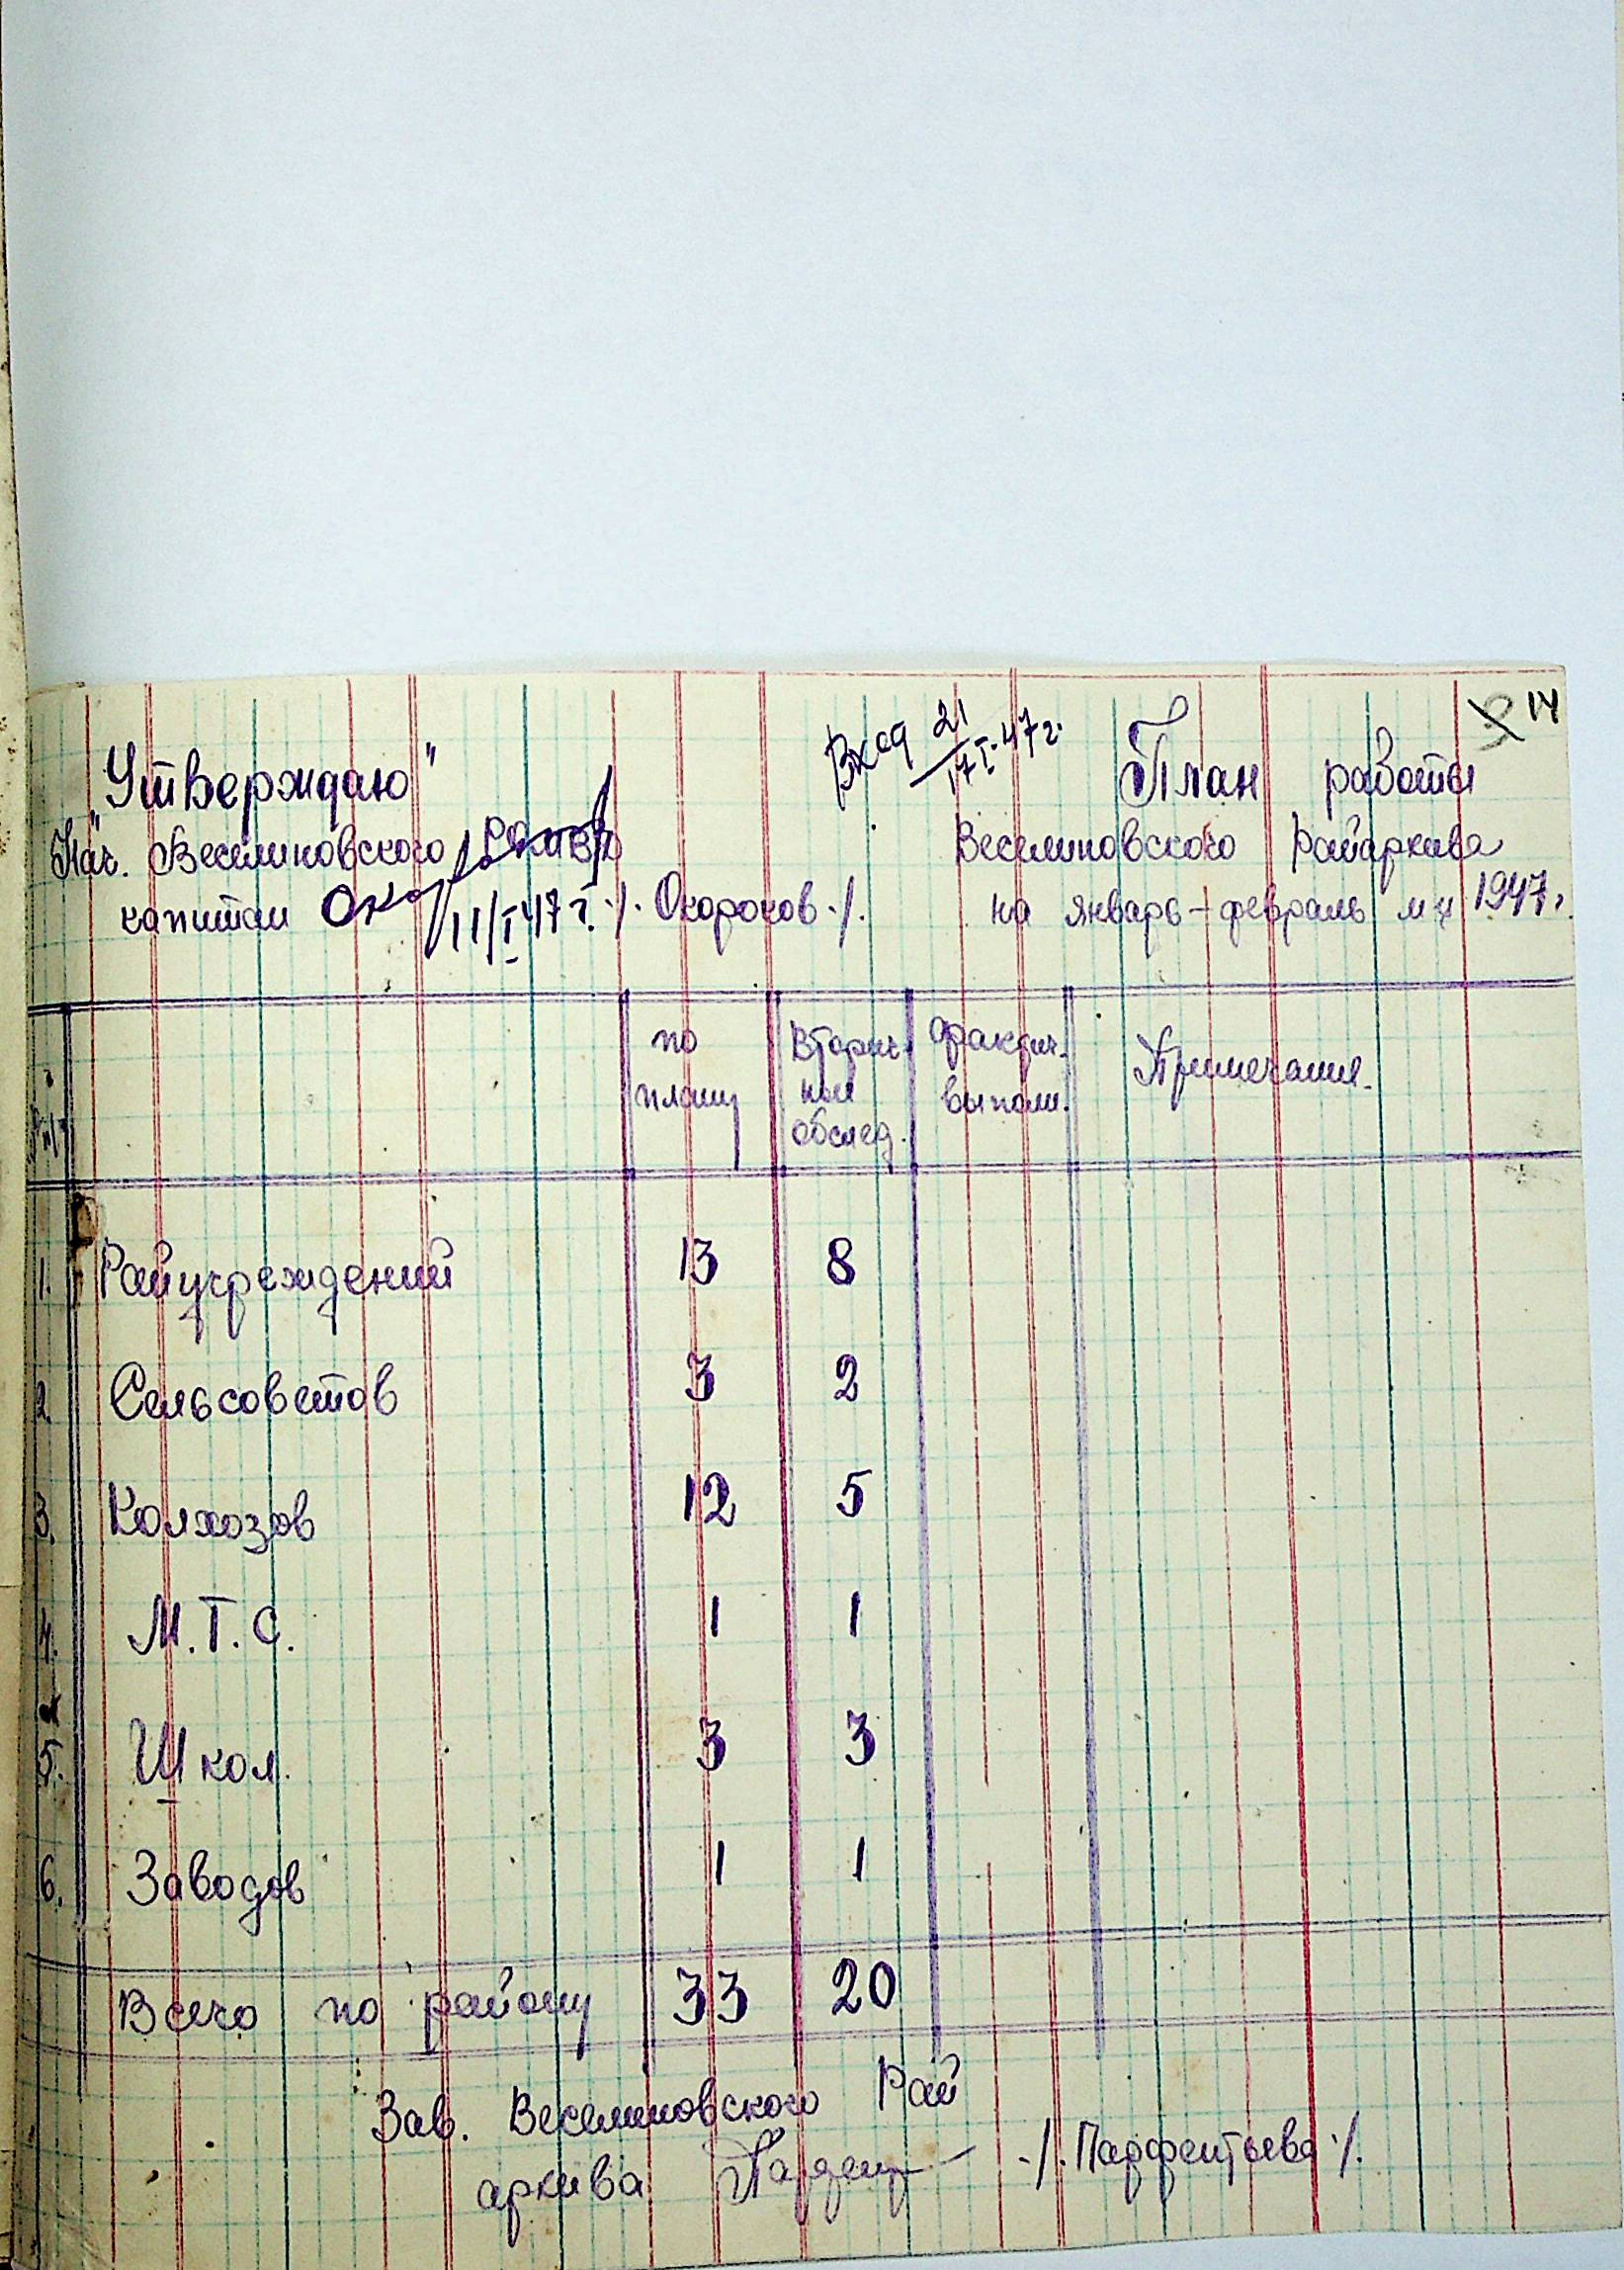 14
Вход 21/17 I. 47 г.
"Утверждаю"
Нач. Веселиновского РОМВД
капитан Око 11/I 47 г. ./. Окороков ./.
План работы
Веселиновского Райархива
на январь-февраль м-ц 1947 г.
№ п/п
по плану
Вторич-
ной
обслед.
фактич.
выполн.
Примечание.
1. Райучреждений 13 8
2. Сельсоветов 3 2
3. Колхозов 12 5
4. М.Т.С. 1 1
5. Школ. 3 3
6. Заводов 1 1
Всего по району 33 20
Зав. Веселиновского Рай
архива ./. Парфентьева ./.